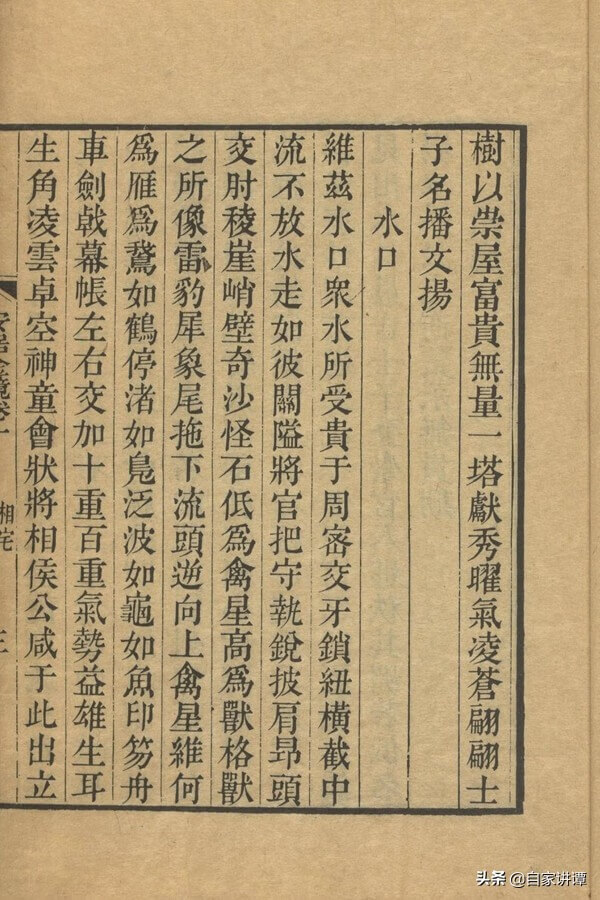 樹以祟屋富貴無量一塔獻秀曜氣凌蒼翩翩士
子名播文揚
水口
維茲水口衆水所受貴于周密交牙鎖紐橫截中
流不放水走如彼關隘將官把守執銳披肩昻頭
交肘稜崖峭壁奇沙怪石低爲禽星高爲獸格獸
之所像雷豹犀象尾拖下流頭逆向上禽星維何
爲雁爲鵞如鶴停渚如鳧泛波如龜如魚印笏舟
車劍戟幕帳左右交加十重百重氣勢益雄生耳
生角凌雲卓空神童會狀將相侯公咸于此出立
安居金鏡卷一
相宅
三
头条 @自家讲谭